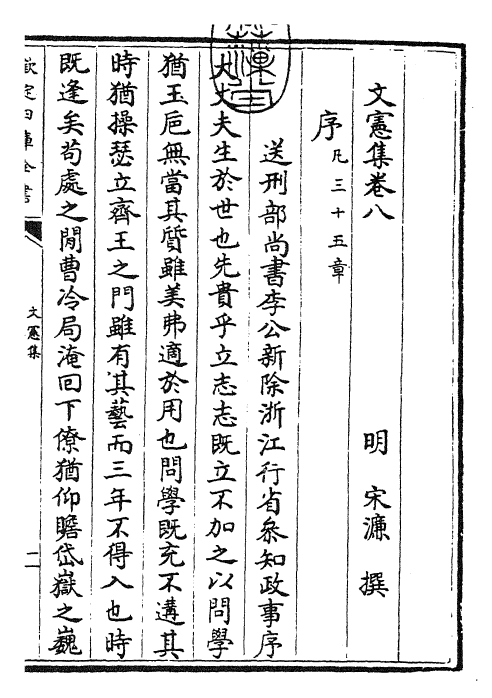 文憲集卷八
明 宋濂 撰
序 凡三十五章
送刑部尚書李公新除浙江行省叅知政事序
大丈夫生於世也先貴乎立志志既立不加之以問學
猶玉巵無當其質雖美弗適於用也問學既充不遘其
時猶操瑟立齊王之門雖有其藝而三年不得入也時
既逢矣苟處之閒曹冷局淹回下僚猶仰瞻岱嶽之巍
欽定四庫全書
文憲集